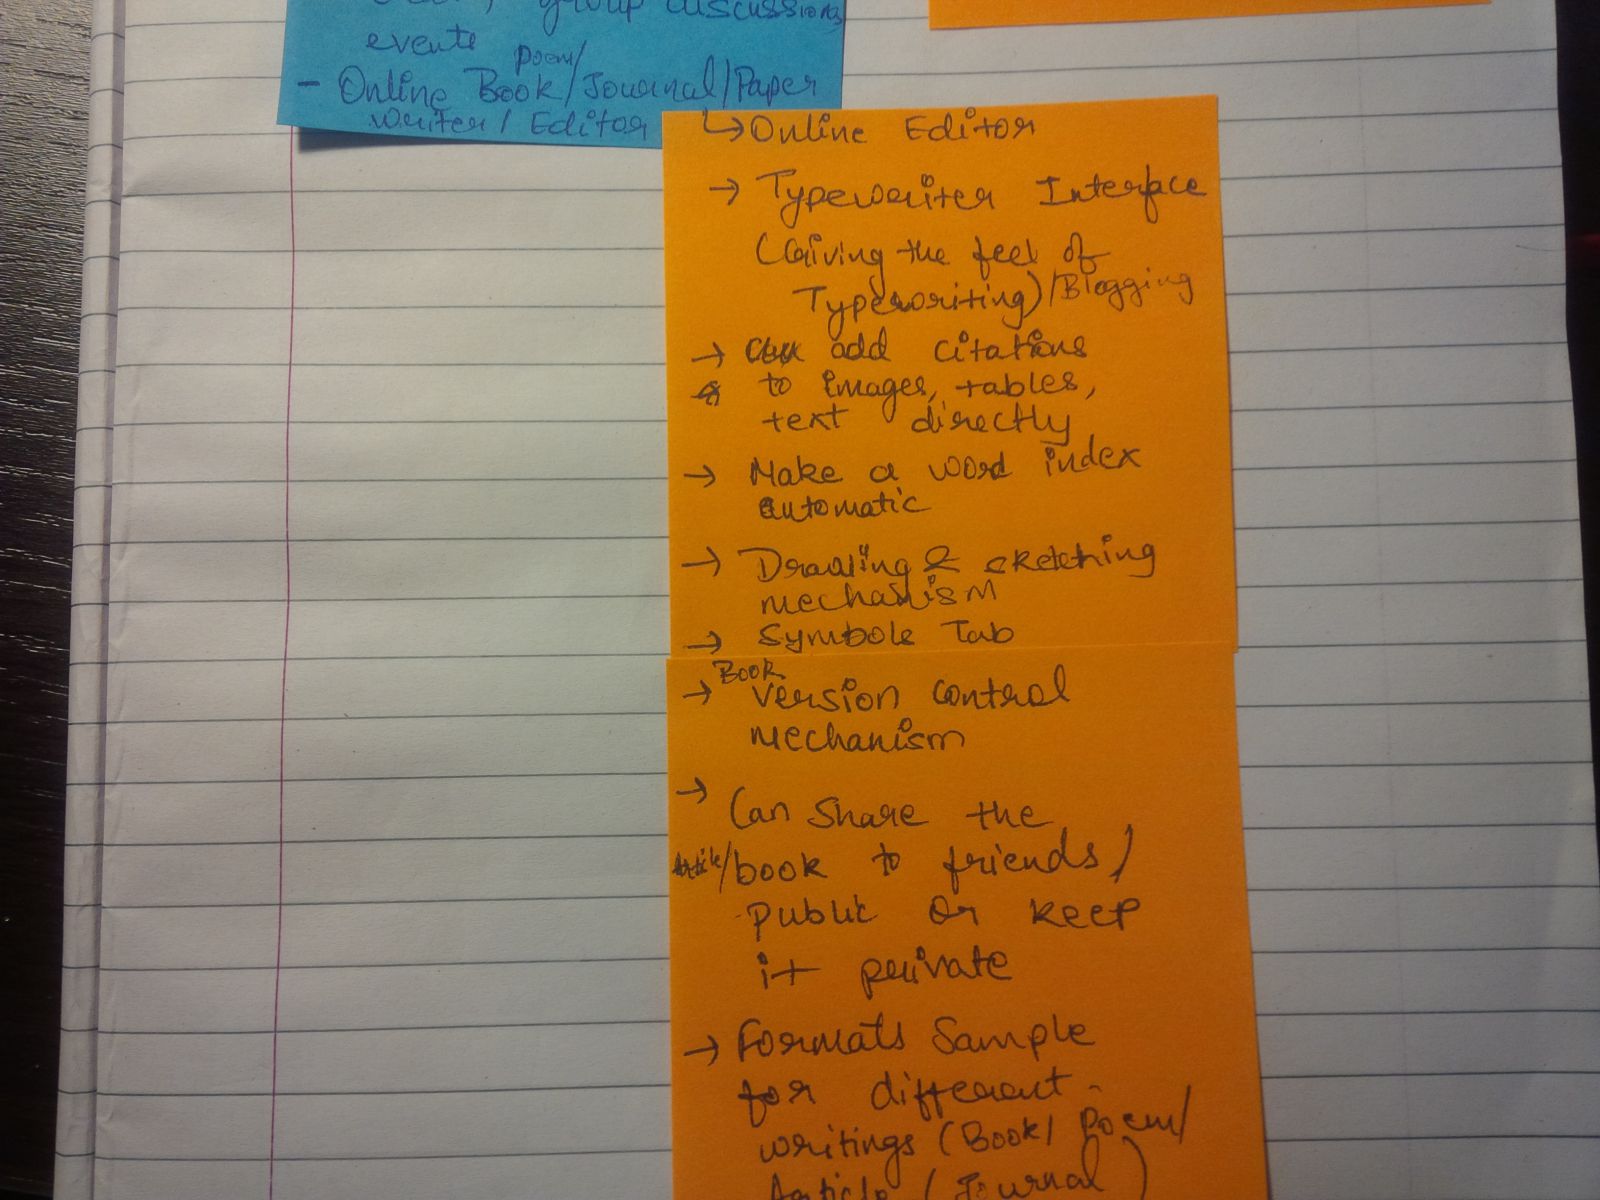 group discussions,
events
poem/
- Online Book/Journal/Paper
writer/Editor
↳ Online Editor
→ Typewriter Interface
(Giving the feel of
Typewriting)/Blogging
→ add citations
to images, tables,
text directly
→ Make a word index
automatic
→ Drawing & sketching
mechanism
→ Symbols Tab
Book
→ version control
mechanism
→ Can share the
/book to friends/
public or keep
it private
→ Formats Sample
for different
writings (Book/Poem/
Article/Journal)